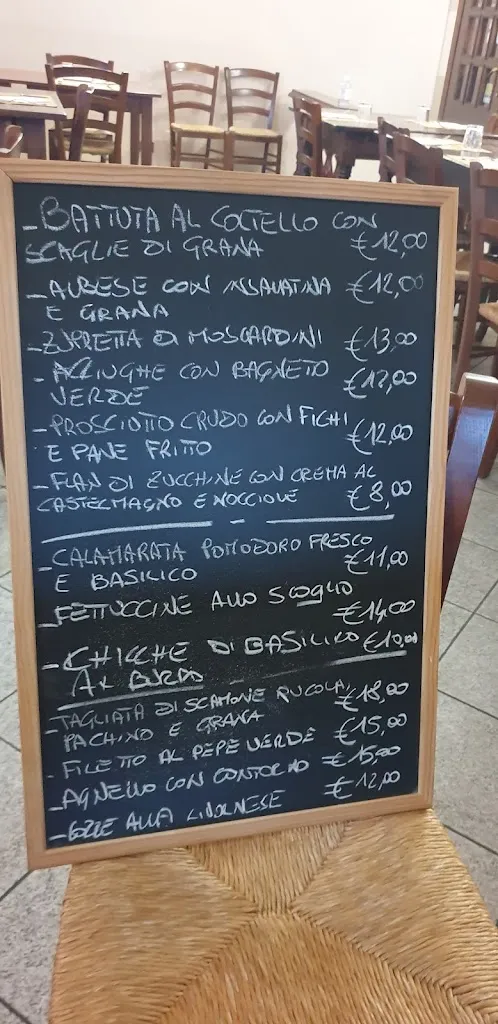 - BATTUTA AL COLTELLO CON
SCAGLIE DI GRANA €12,00
- ALBESE CON INSALATINA €12,00
E GRANA
- ZUPPETTA DI MOSCARDINI €13,00
- ACCIUGHE CON BAGNETO €12,00
VERDE
- PROSCIUTTO CRUDO CON FICHI
E PANE FRITTO €12,00
- FLAN DI ZUCCHINE CON CREMA AL
CASTELMAGNO E NOCCIOLE €8,00
- CALAMARATA POMODORO FRESCO
E BASILICO €11,00
- FETTUCCINE ALLO SCOGLIO
€14,00
- CHICCHE DI BASILICO €10,00
AL BURRO
- TAGLIATA DI SCAMONE RUCOLA, €18,00
PACHINO E GRANA
- FILETTO AL PEPE VERDE €15,00
- AGNELLO CON CONTORNO €15,00
- COZZE ALLA LIVORNESE €12,00